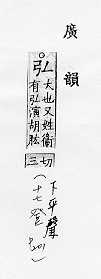 廣韻
弘大也又姓衛
有弘演胡肱
切三
(下平聲
十七登韻)